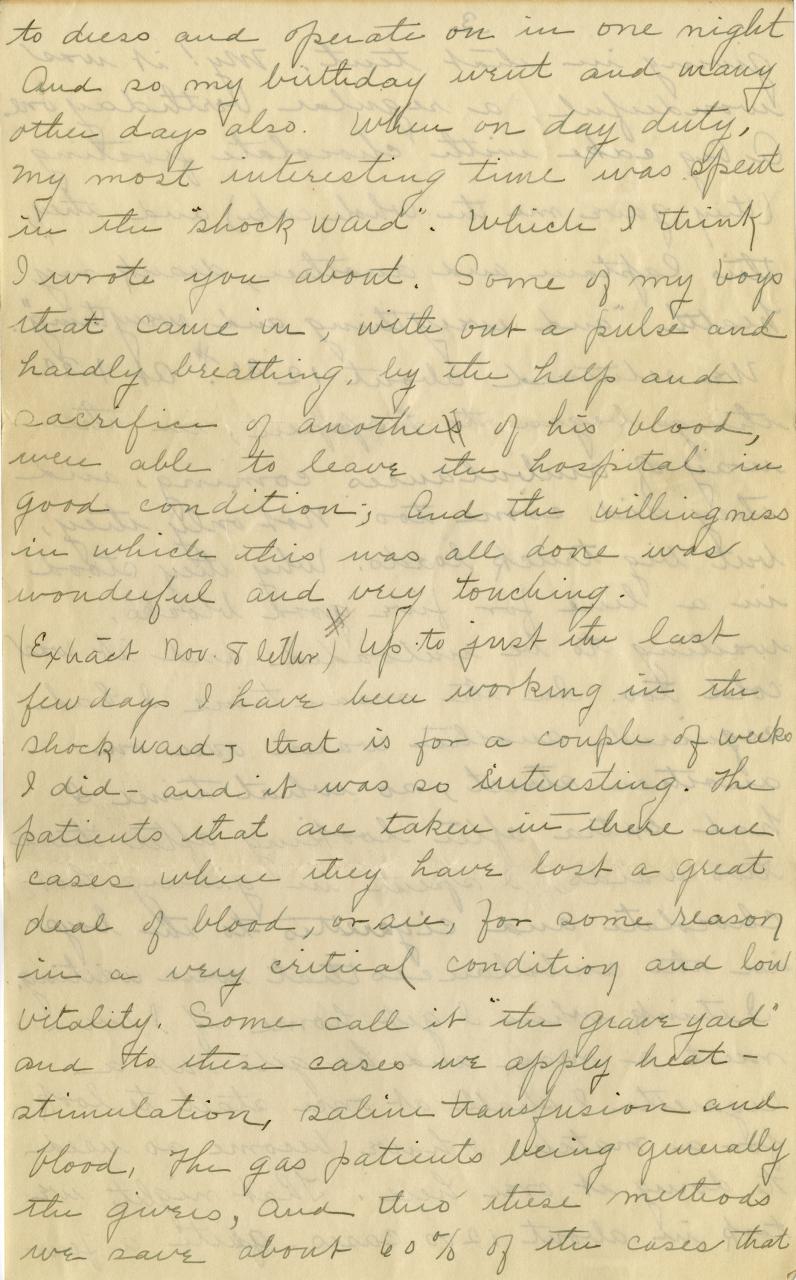 to dress and operate on in one night
And so my birthday went and many
other days also. When on day duty,
my most interesting time was spent
in the "shock ward". Which I think
I wrote you about. Some of my boys
that came in, with out a pulse and
hardly breathing, by the help and
sacrifice of another of his blood,
were able to leave the hospital in
good condition; And the willingness
in which this was all done was
wonderful and very touching.
(Extract Nov. 8 letter) Up to just the last
few days I have been working in the
shock ward, that is for a couple of weeks
I did - and it was so interesting. The
patients that are taken in there are
cases where they have lost a great
deal of blood, or are, for some reason
in a very critical condition and low
vitality. Some call it "the grave yard"
and to these cases we apply heat -
stimulation, saline transfusion and
blood, The gas patients being generally
the givers, and thro' these methods
we save about 60% of the cases that